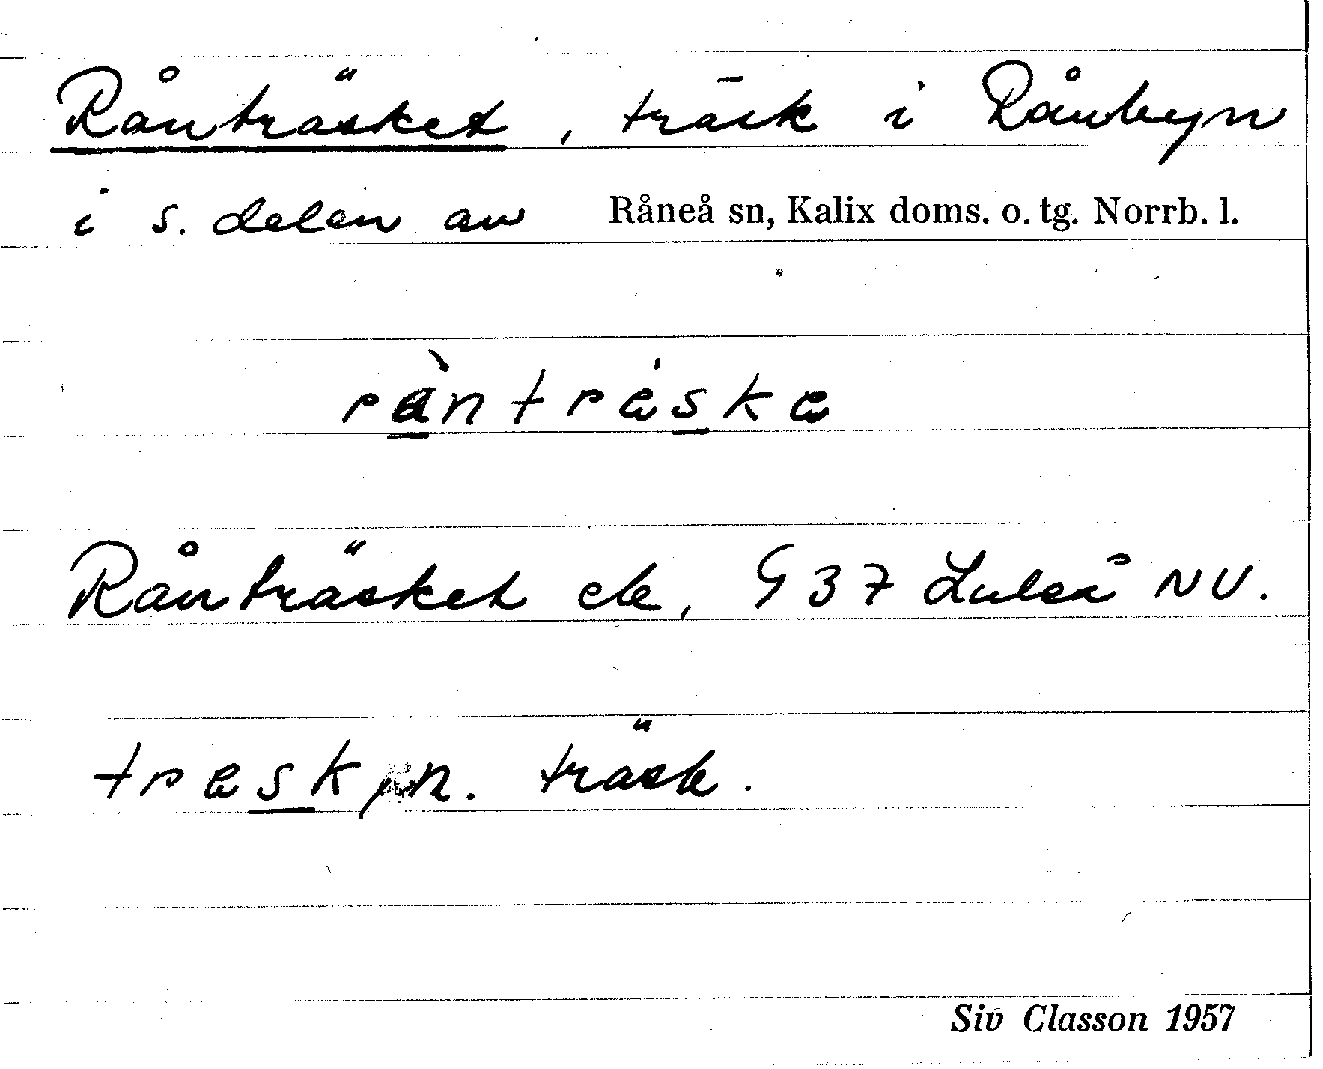 Rånträsket, träsk i Rånbyn
i s. delen av Råneå sn, Kalix doms. o. tg. Norrb. l.
ràntréske
Rånträsket ek, G 37 Luleå NV.
tresk, n. träsk.
Siv Classon 1957